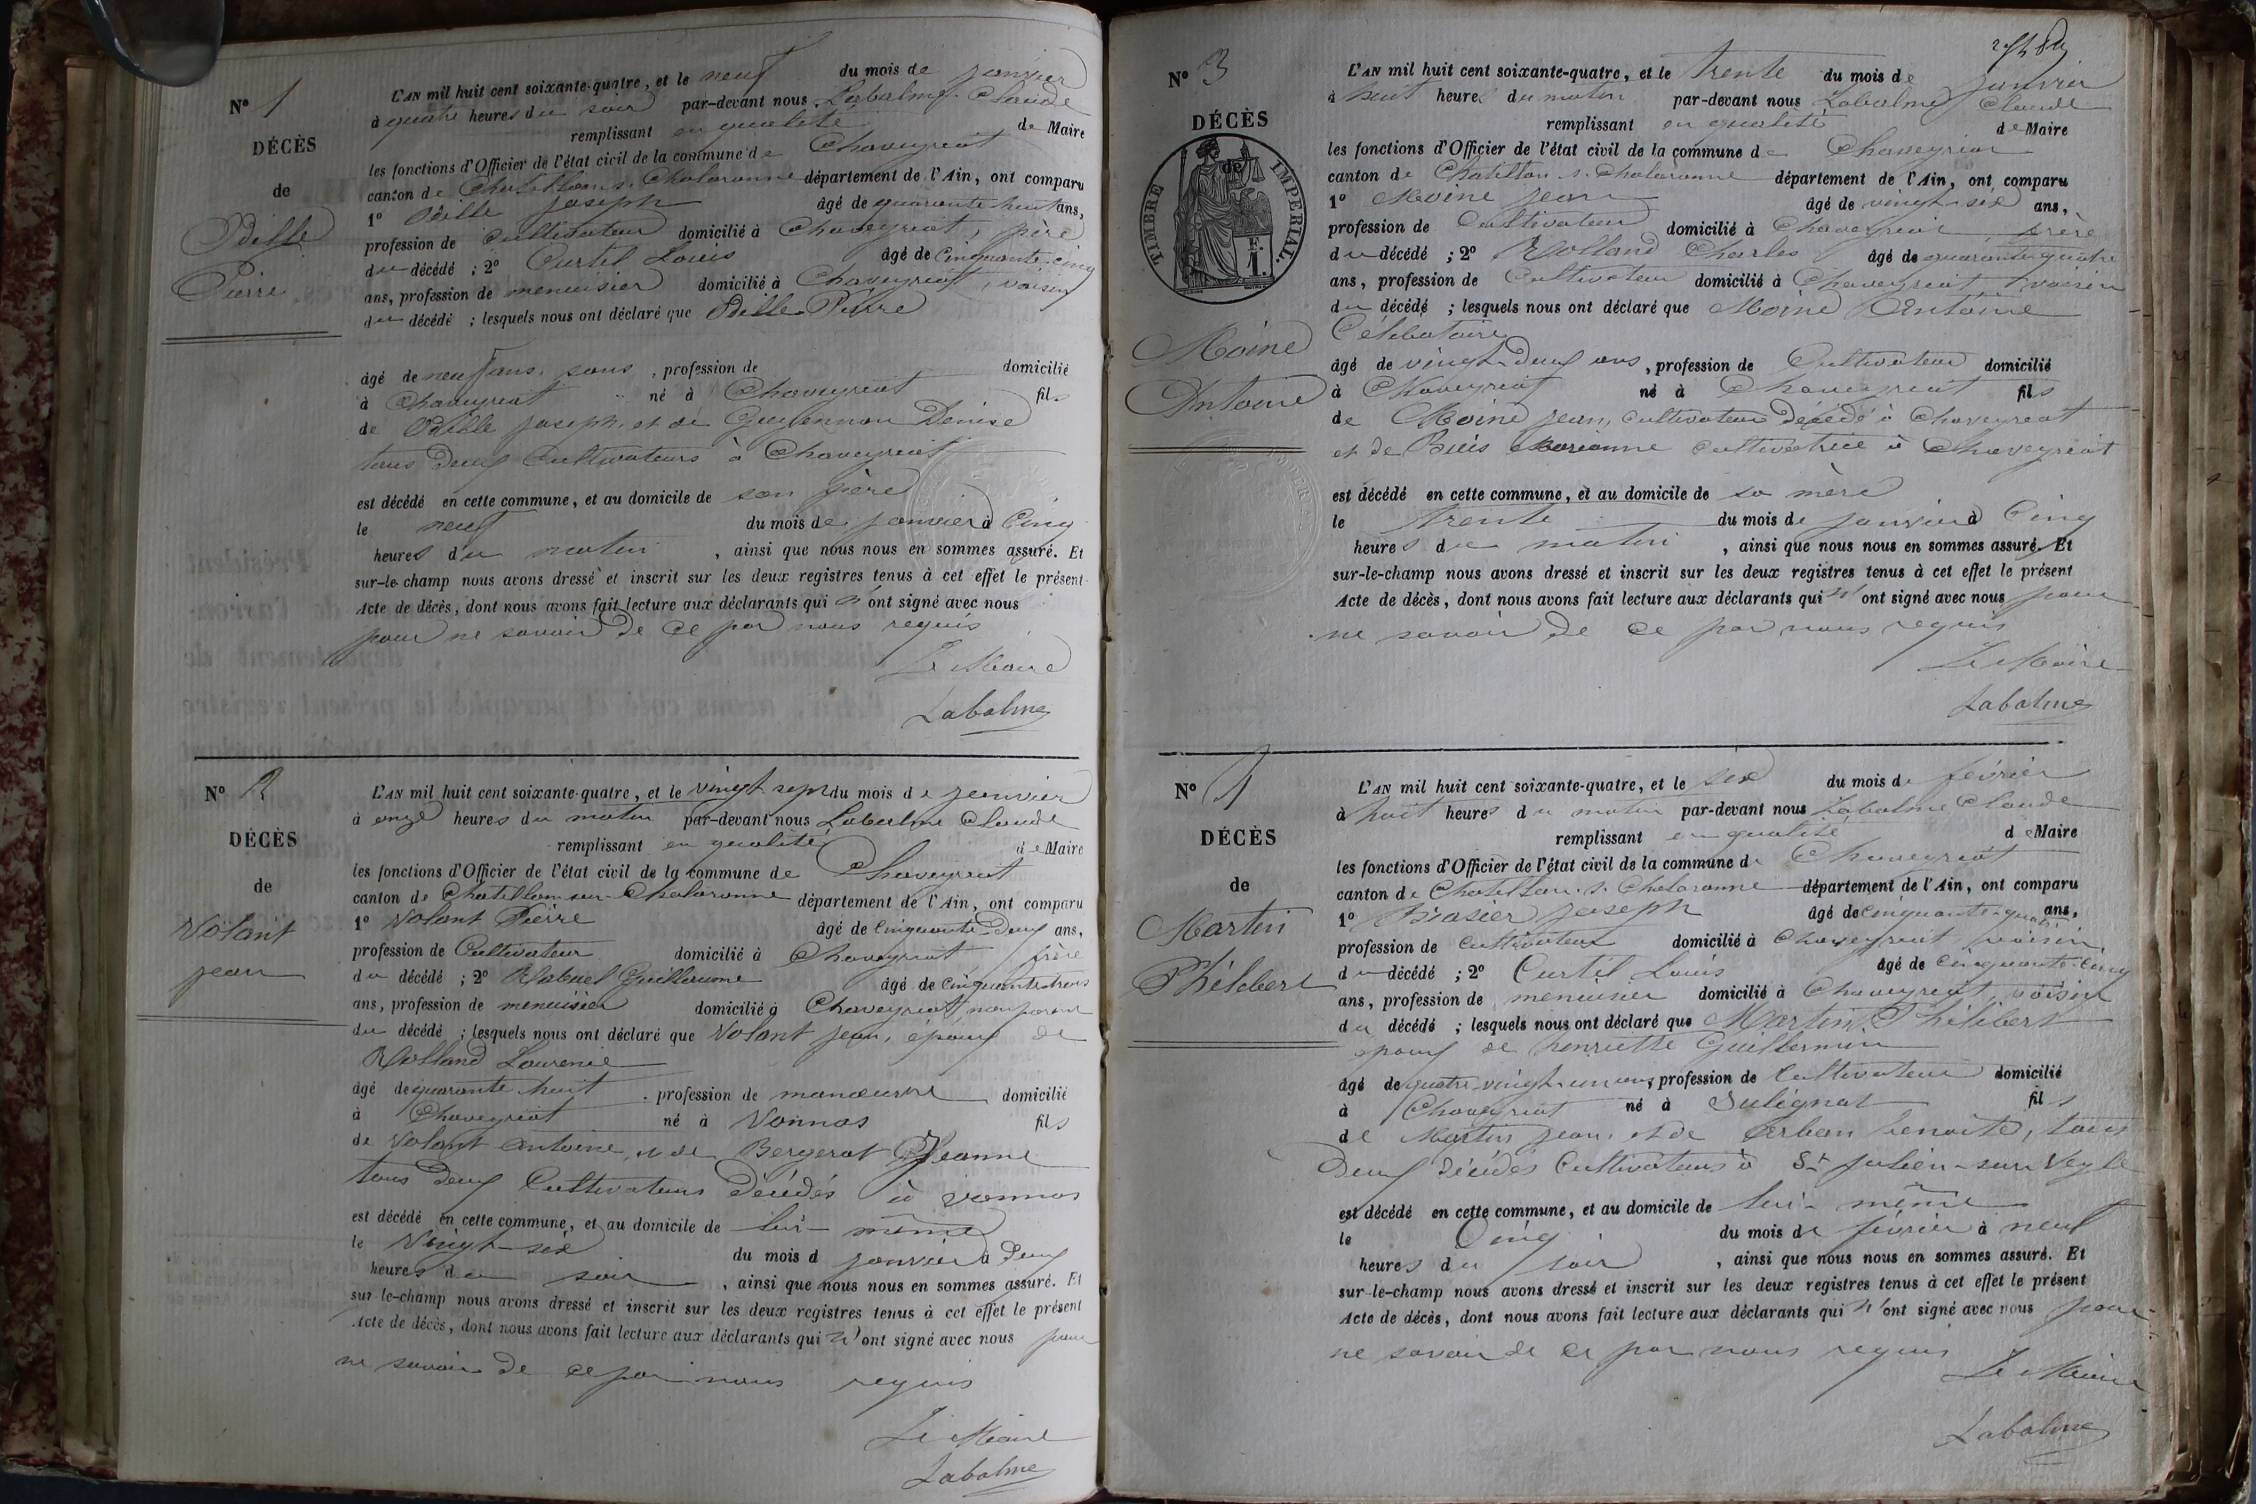 N° 1
DÉCÈS
de
Odille
Pierre
L'AN mil huit cent soixante-quatre, et le neuf du mois de janvier
à quatre heures du soir par-devant nous Labalme Claude
remplissant en qualité de Maire
les fonctions d'Officier de l'état civil de la commune de Chaveyriat
canton de Chatillon s. Chalaronne département de l'Ain, ont comparu
1° Odille Joseph âgé de quarante huit ans,
profession de Cultivateur domicilié à Chaveyriat, père
du décédé ; 2° Curtil Louis âgé de Cinquante-cinq
ans, profession de menuisier domicilié à Chaveyriat, voisin
du décédé ; lesquels nous ont déclaré que Odille Pierre
âgé de neuf ans, sans , profession de domicilié
à Chaveyriat né à Chaveyriat fils
de Odille Joseph, et de Denise
tous Deux Cultivateurs à Chaveyriat
est décédé en cette commune, et au domicile de son père
le neuf du mois de janvier à Cinq
heures du matin , ainsi que nous nous en sommes assuré. Et
sur-le-champ nous avons dressé et inscrit sur les deux registres tenus à cet effet le présent
Acte de décès, dont nous avons fait lecture aux déclarants qui n'ont signé avec nous
pour ne savoir de ce par nous requis
Le Maire
Labalme
N° 2
DÉCÈS
de
Volant
jean
L'AN mil huit cent soixante-quatre, et le vingt sept du mois de janvier
à onze heures du matin par-devant nous Labalme Claude
remplissant en qualité de Maire
les fonctions d'Officier de l'état civil de la commune de Chaveyriat
canton de Chatillon-sur-Chalaronne département de l'Ain, ont comparu
1° Volant Pierre âgé de Cinquante Deux ans,
profession de Cultivateur domicilié à Chaveyriat frère
du décédé ; 2° Guillaume âgé de Cinquante trois
ans, profession de menuisier domicilié à Chaveyriat, non parent
du décédé ; lesquels nous ont déclaré que Volant jean, époux de
Rolland Laurence
âgé de quarante huit , profession de manoeuvre domicilié
à Chaveyriat né à Vonnas fils
de Volant Antoine, et de Bergerat Jeanne
tous Deux Cultivateurs Décédés à Vonnas
est décédé en cette commune, et au domicile de lui-même
le Vingt-six du mois d janvier à Deux
heures du soir , ainsi que nous nous en sommes assuré. Et
sur-le-champ nous avons dressé et inscrit sur les deux registres tenus à cet effet le présent
Acte de décès, dont nous avons fait lecture aux déclarants qui n'ont signé avec nous pour
ne savoir de ce par nous requis
Le Maire
Labalme
N° 3
DÉCÈS
de
TIMBRE IMPERIAL
Moine
Antoine
L'AN mil huit cent soixante-quatre, et le trente du mois de janvier
à huit heures du matin par-devant nous Labalme Claude
remplissant en qualité de Maire
les fonctions d'Officier de l'état civil de la commune de Chaveyriat
canton de Chatillon s. Chalaronne département de l'Ain, ont comparu
1° Moine jean âgé de vingt-six ans,
profession de Cultivateur domicilié à Chaveyriat frère
du décédé ; 2° Rolland Charles âgé de quarante quatre
ans, profession de Cultivateur domicilié à Chaveyriat, voisin
du décédé ; lesquels nous ont déclaré que Moine Antoine
Célibataire
âgé de vingt-Deux ans, profession de Cultivateur domicilié
à Chaveyriat né à Chaveyriat fils
de Moine jean, Cultivateur Décédé à Chaveyriat
et de Buis Marianne Cultivatrice à Chaveyriat
est décédé en cette commune, et au domicile de sa mère
le trente du mois de janvier à Cinq
heures du matin , ainsi que nous nous en sommes assuré. Et
sur-le-champ nous avons dressé et inscrit sur les deux registres tenus à cet effet le présent
Acte de décès, dont nous avons fait lecture aux déclarants qui n'ont signé avec nous pour
ne savoir de ce par nous requis
Le Maire
Labalme
N° 4
DÉCÈS
de
Martin
Philibert
L'AN mil huit cent soixante-quatre, et le six du mois de février
à huit heures du matin par-devant nous Labalme Claude
remplissant en qualité de Maire
les fonctions d'Officier de l'état civil de la commune de Chaveyriat
canton de Chatillon s. Chalaronne département de l'Ain, ont comparu
1° Brasier Joseph âgé de Cinquante-quatre ans,
profession de Cultivateur domicilié à Chaveyriat, voisin
du décédé ; 2° Curtil Louis âgé de Cinquante-Cinq
ans, profession de menuisier domicilié à Chaveyriat, voisin
du décédé ; lesquels nous ont déclaré que Martin Philibert
époux de henriette Guillermin
âgé de quatre-vingt-un ans, profession de Cultivateur domicilié
à Chaveyriat né à Sulignat fils
de Martin jean, et de benoite, tous
Deux Décédés Cultivateurs à St julien-sur-Veyle
est décédé en cette commune, et au domicile de lui-même
le Cinq du mois de février à neuf
heures du soir , ainsi que nous nous en sommes assuré. Et
sur-le-champ nous avons dressé et inscrit sur les deux registres tenus à cet effet le présent
Acte de décès, dont nous avons fait lecture aux déclarants qui n'ont signé avec nous pour
ne savoir de ce par nous requis
Le Maire
Labalme